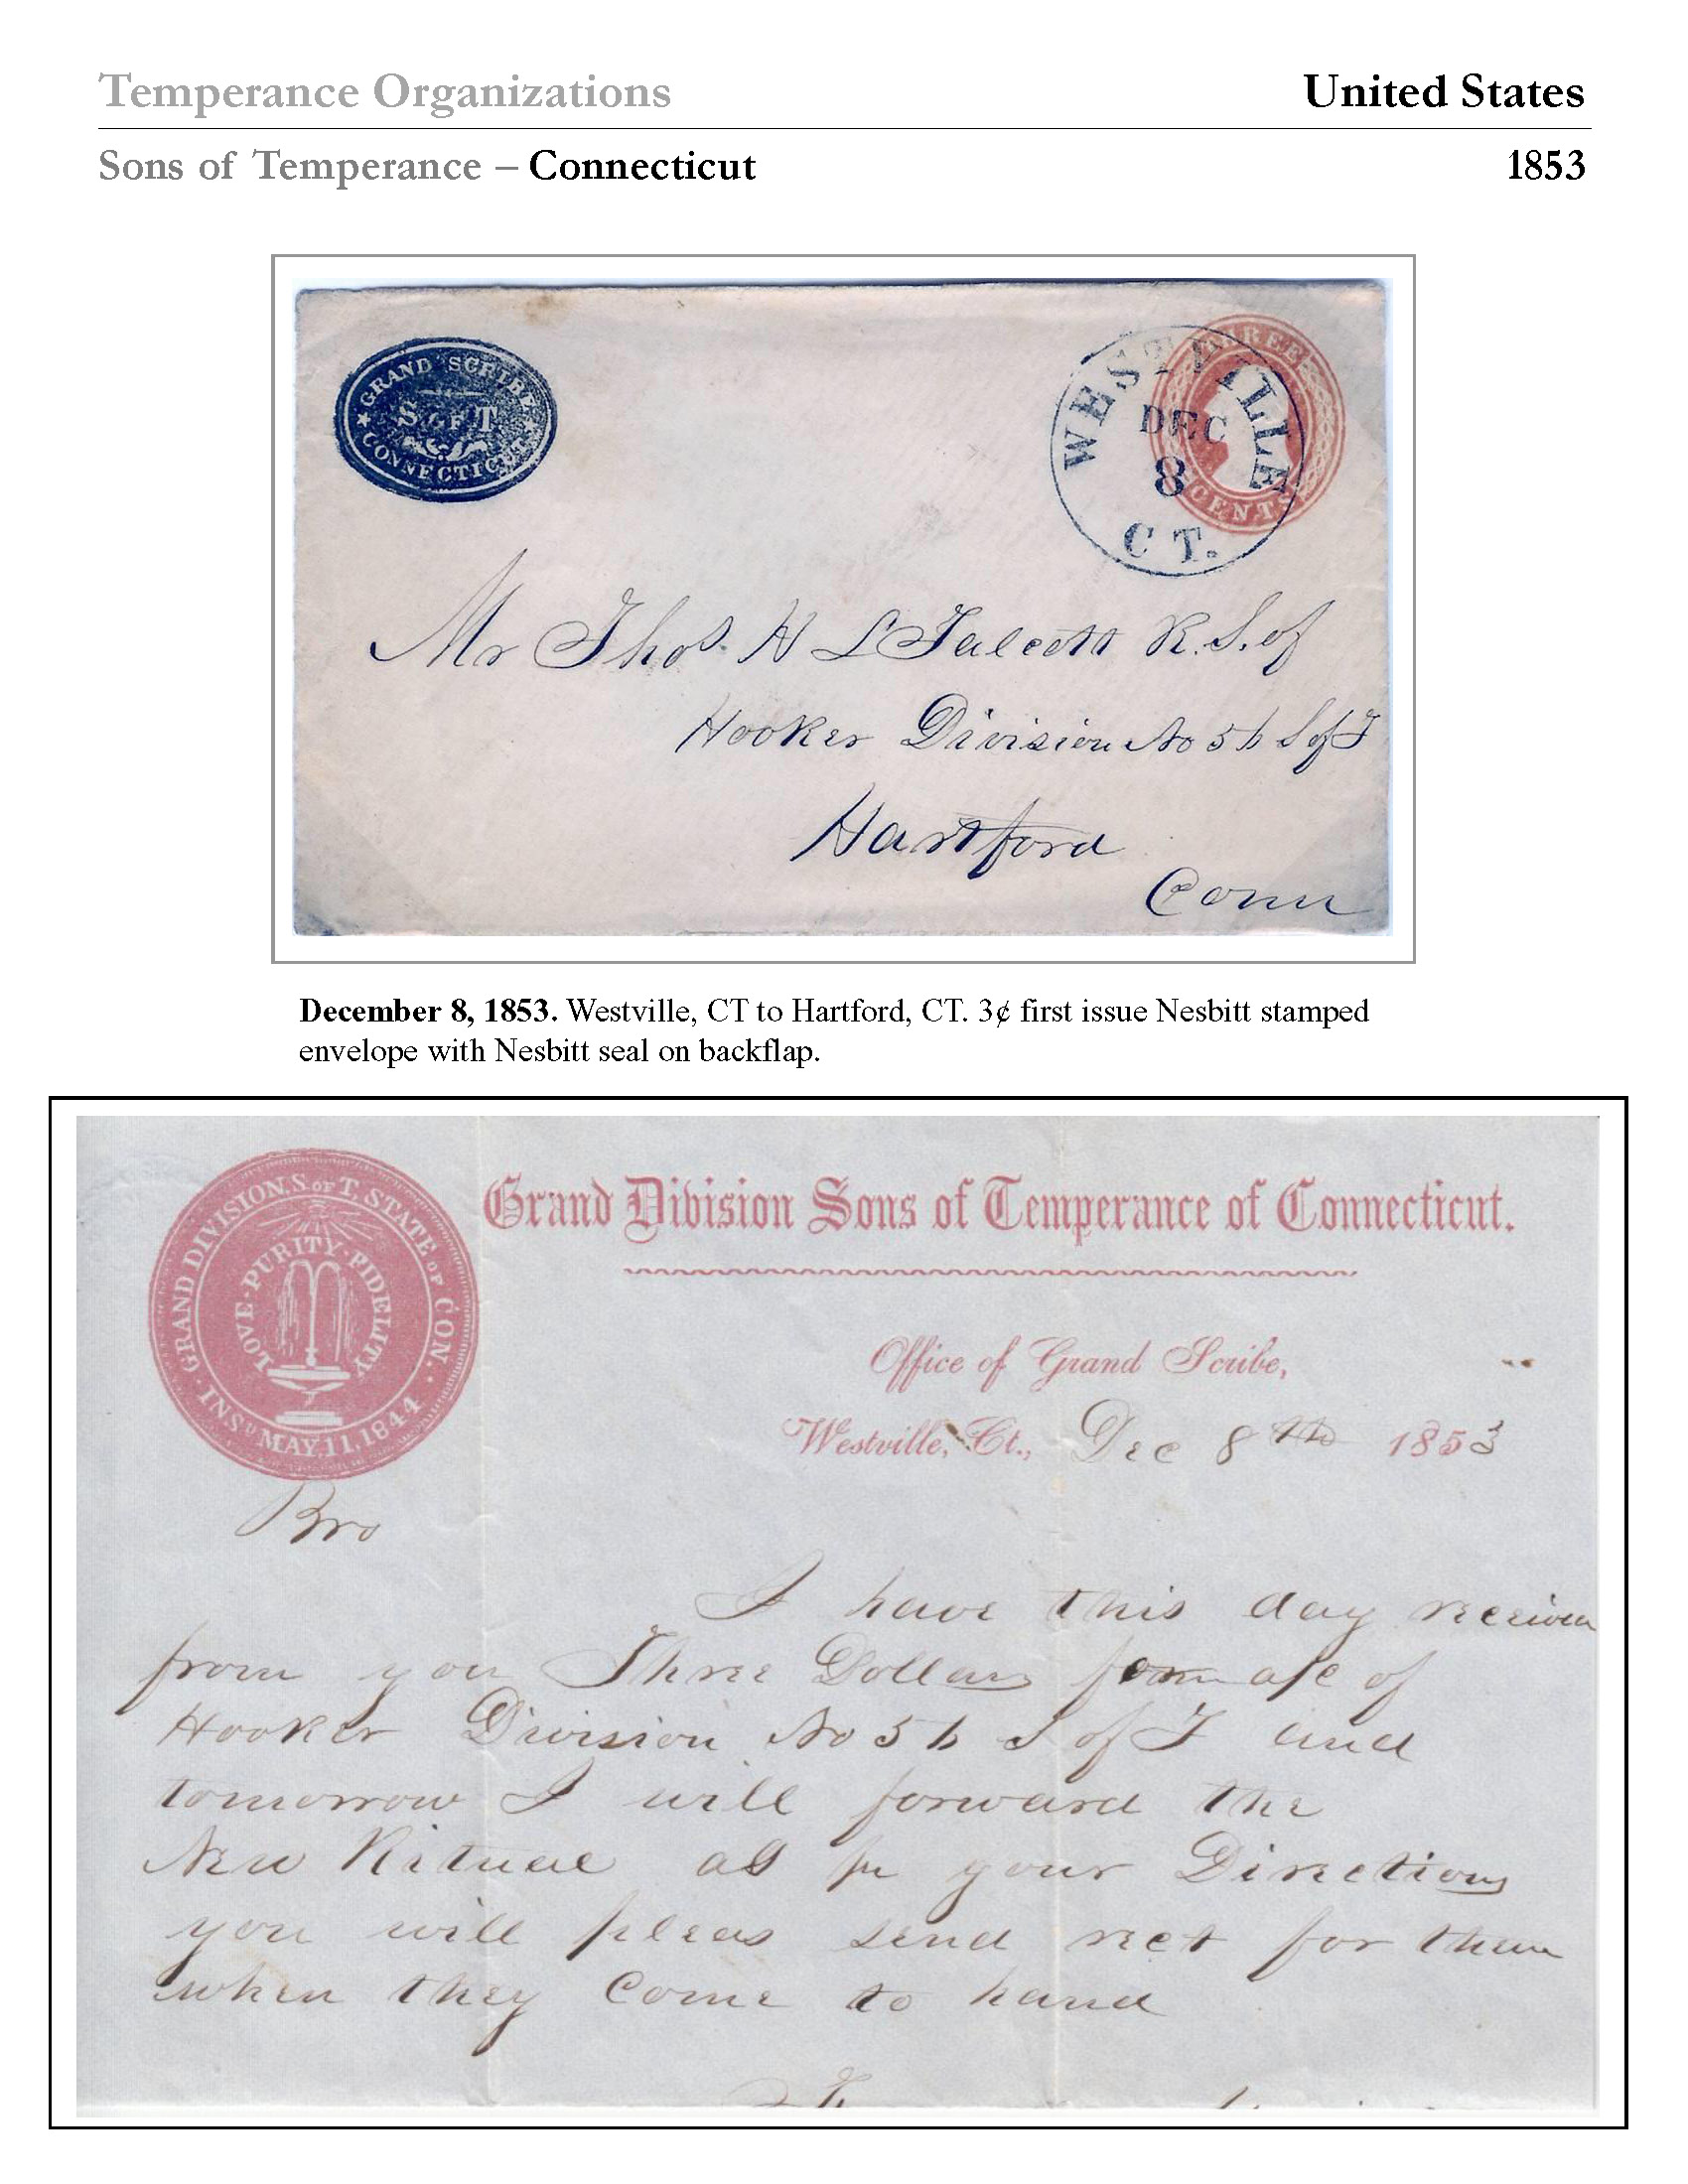 Temperance Organizations
United States
Sons of Temperance – Connecticut
1853
GRAND SCRIBE
S. OF T.
CONNECTICUT
THREE
CENTS
WESTVILLE
DEC
8
CT.
Mr Thos. H L Talcott R.S. of
Hooker Division No 56 S of T
Hartford
Conn
December 8, 1853. Westville, CT to Hartford, CT. 3¢ first issue Nesbitt stamped
envelope with Nesbitt seal on backflap.
GRAND DIVISION, S. OF T. STATE OF CON.
LOVE · PURITY · FIDELITY
INSD MAY, 11, 1844
Grand Division Sons of Temperance of Connecticut.
Office of Grand Scribe,
Westville, Ct., Dec 8th 1853
Bro
I have this day received
from you Three Dollars a/c of
Hooker Division No 56 S of T and
tomorrow I will forward the
New Ritual as pr your Directions
you will pleas send rect for them
when they come to hand